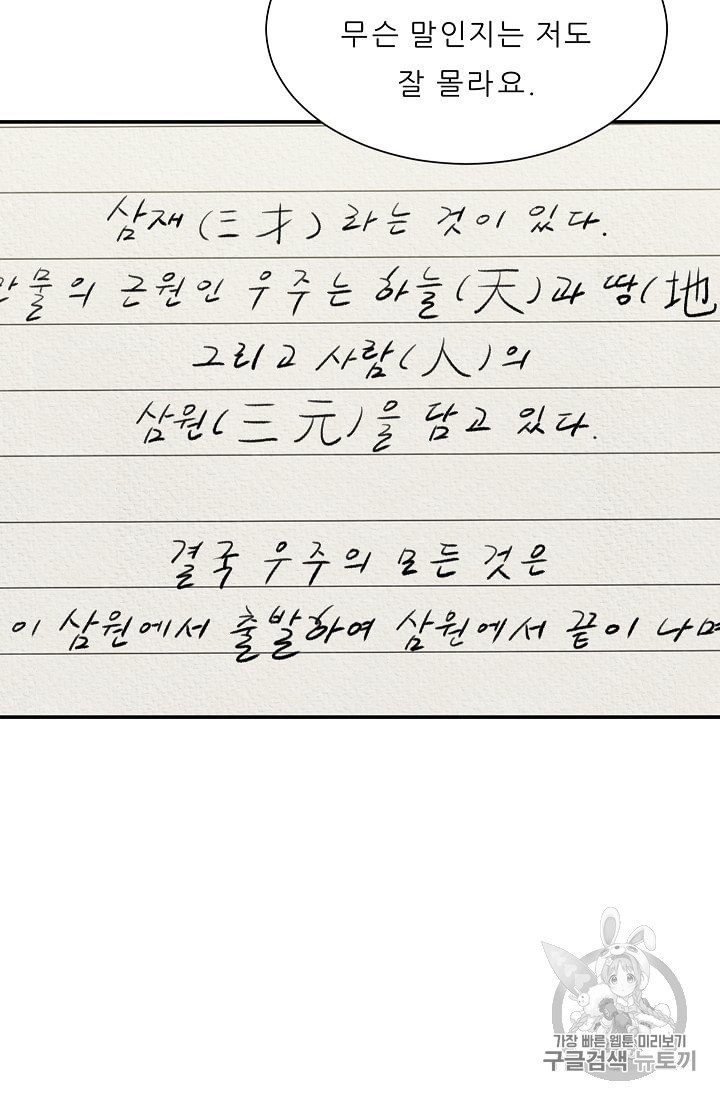 무슨 말인지는 저도
잘 몰라요.
삼재(三才)라는 것이 있다.
만물의 근원인 우주는 하늘(天)과 땅(地
그리고 사람(人)의
삼원(三元)을 담고 있다.
결국 우주의 모든 것은
이 삼원에서 출발하여 삼원에서 끝이 나며
가장 빠른 웹툰 미리보기
구글검색 뉴토끼